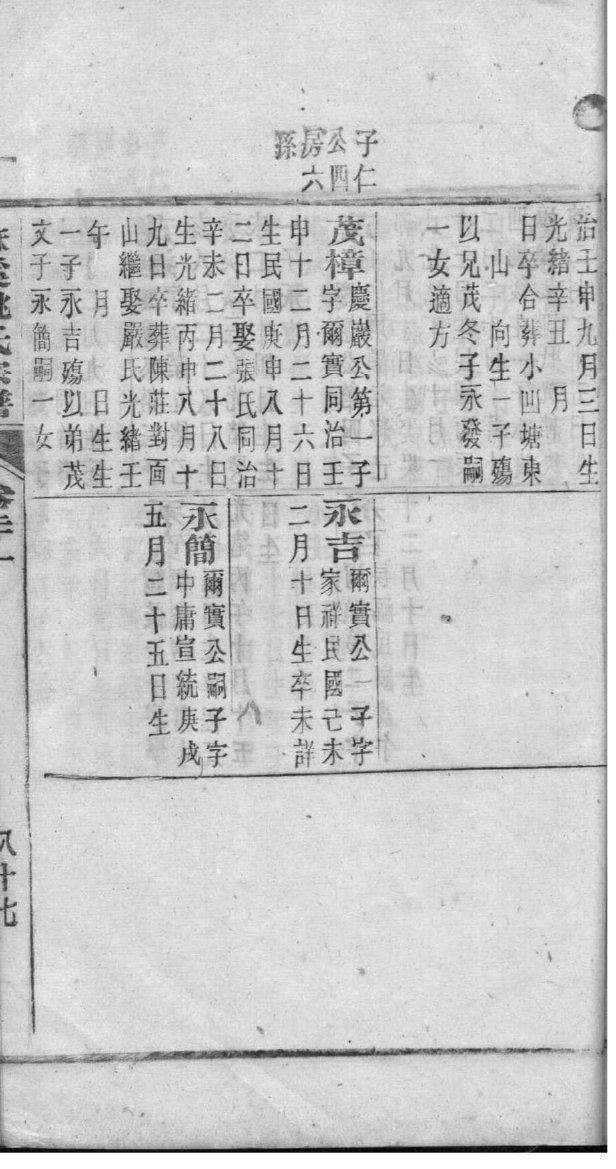 子仁
公四
房六
孫
治壬申九月三日生
光緒辛丑 月
日卒合葬小凹塘東
山 向生一子殤
以兄茂冬子永發嗣
一女適方
茂樟慶巖公第一子
字爾實同治壬
申十二月二十六日
生民國庚申八月十
二日卒娶張氏同治
辛未二月二十八日
生光緒丙申八月十
九日卒葬陳莊對面
山繼娶嚴氏光緒壬
午 月 日生生
一子永吉殤以弟茂
文子永簡嗣一女
永吉爾實公一子字
家祥民國己未
二月十日生卒未詳
永簡爾實公嗣子字
中庸宣統庚戌
五月二十五日生
姚氏宗譜
八十七